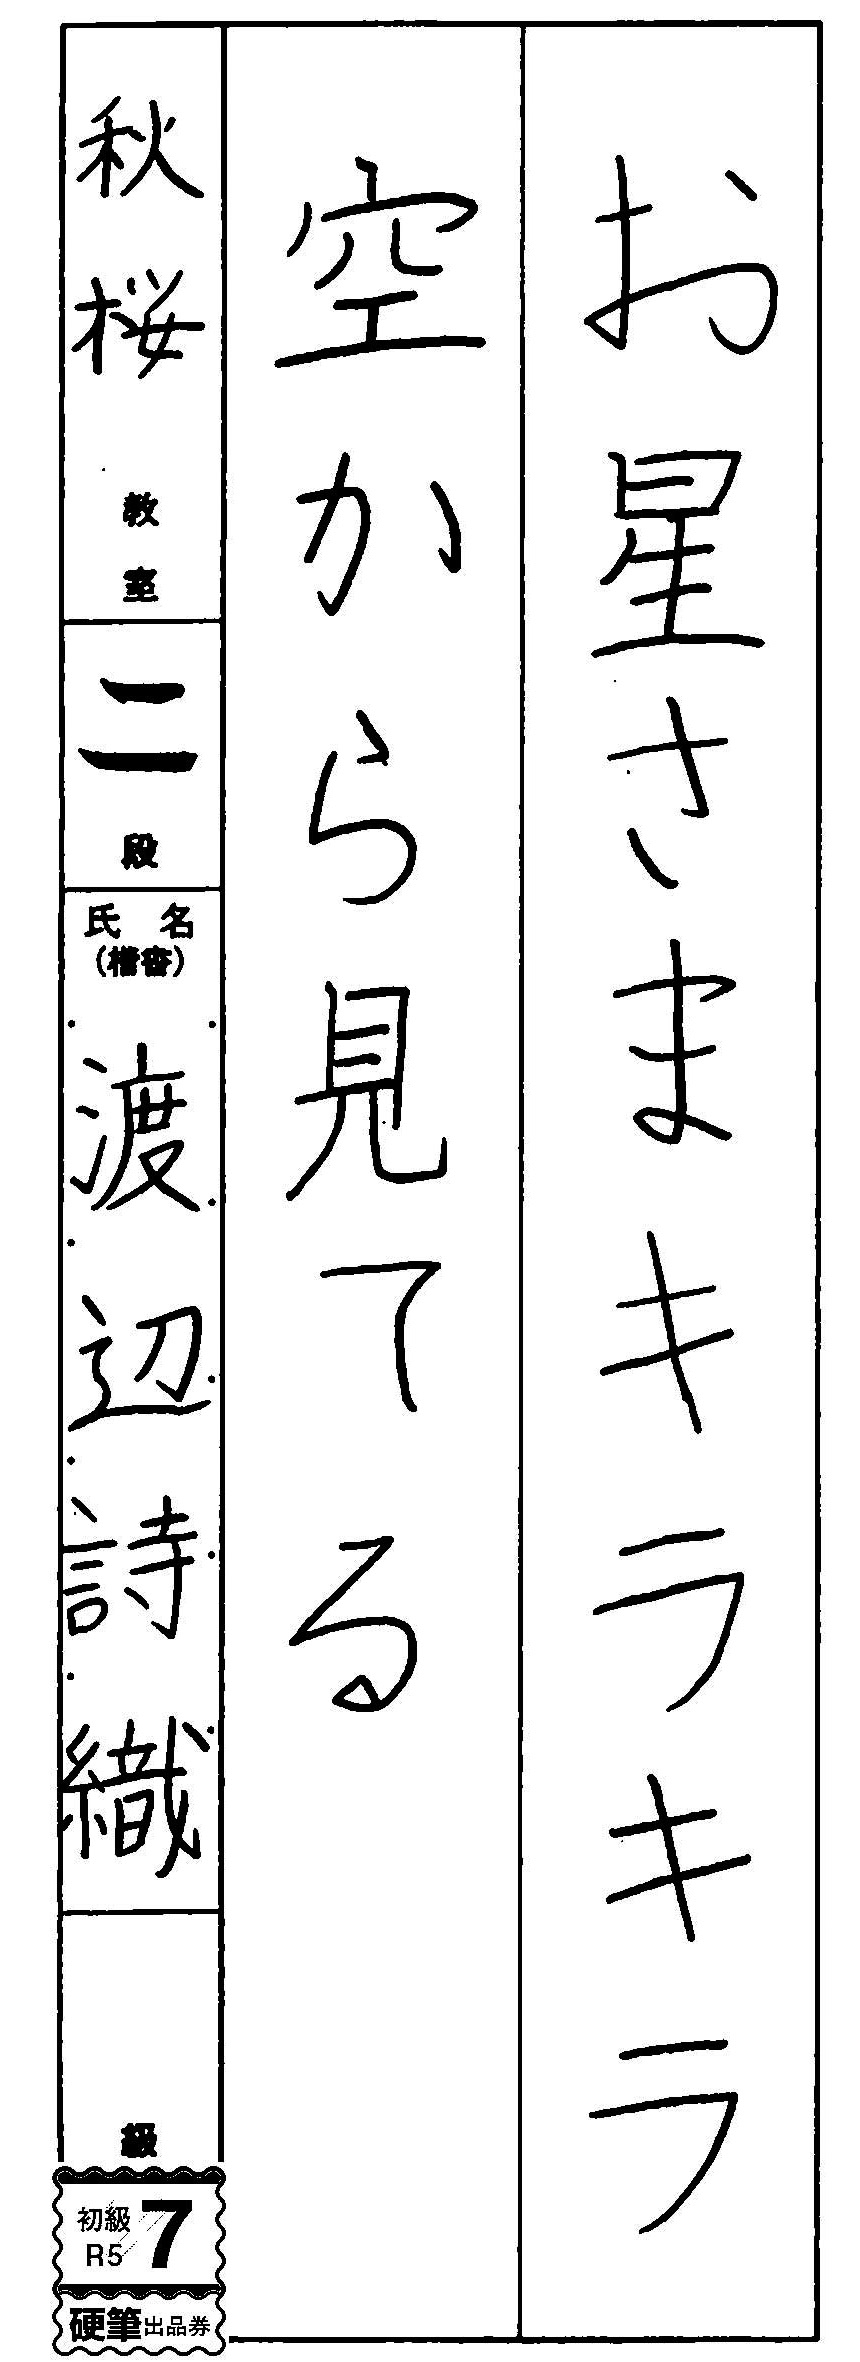 お星さまキラキラ
空から見てる
秋桜教室
二段
氏名
(楷書)
渡辺詩織
級
初級
R5
7
硬筆出品券